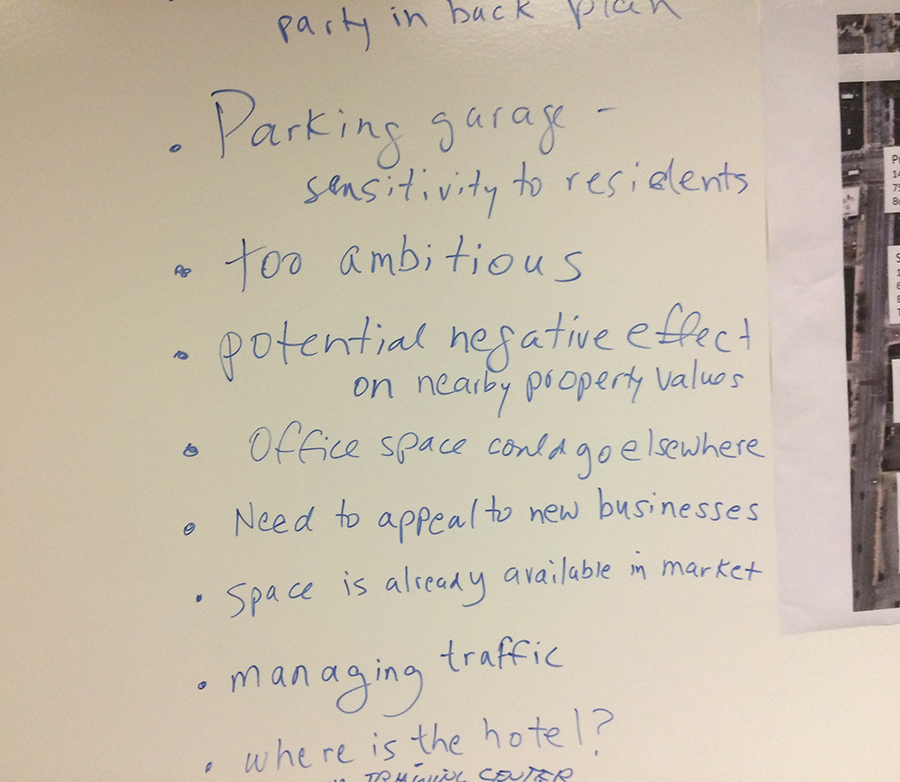 party in back plan
• Parking garage -
sensitivity to residents
• too ambitious
• potential negative effect
on nearby property values
• Office space could go elsewhere
• Need to appeal to new businesses
• Space is already available in market
• managing traffic
• where is the hotel?
TRAINING CENTER